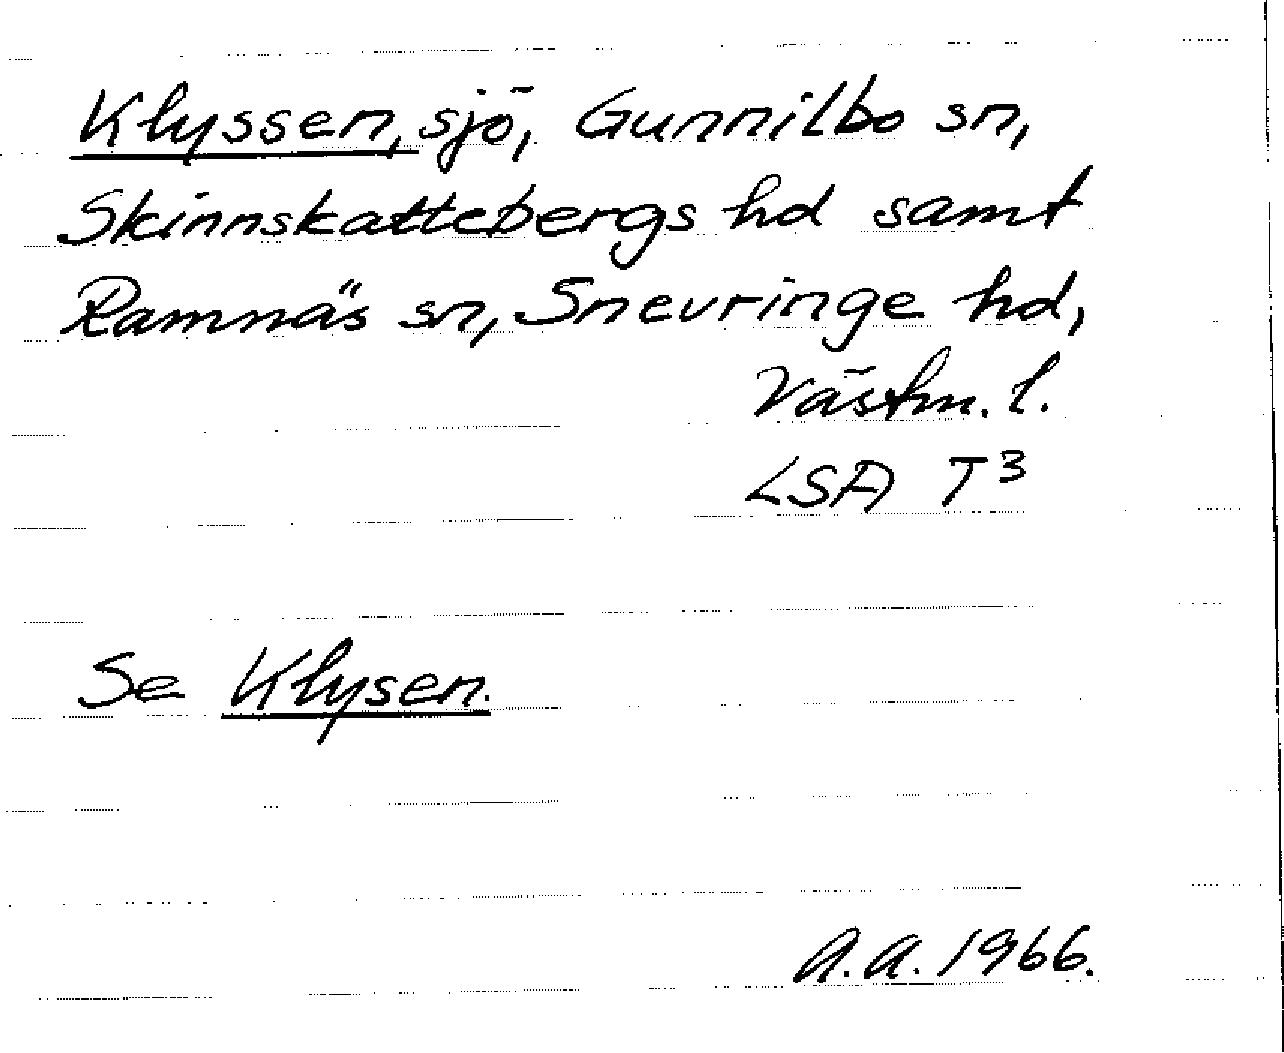 Klyssen, sjö, Gunnilbo sn,
Skinnskattebergs hd samt
Ramnäs sn, Snevringe hd,
Västm. l.
LSA T3
Se Klysen.
A.A. 1966.